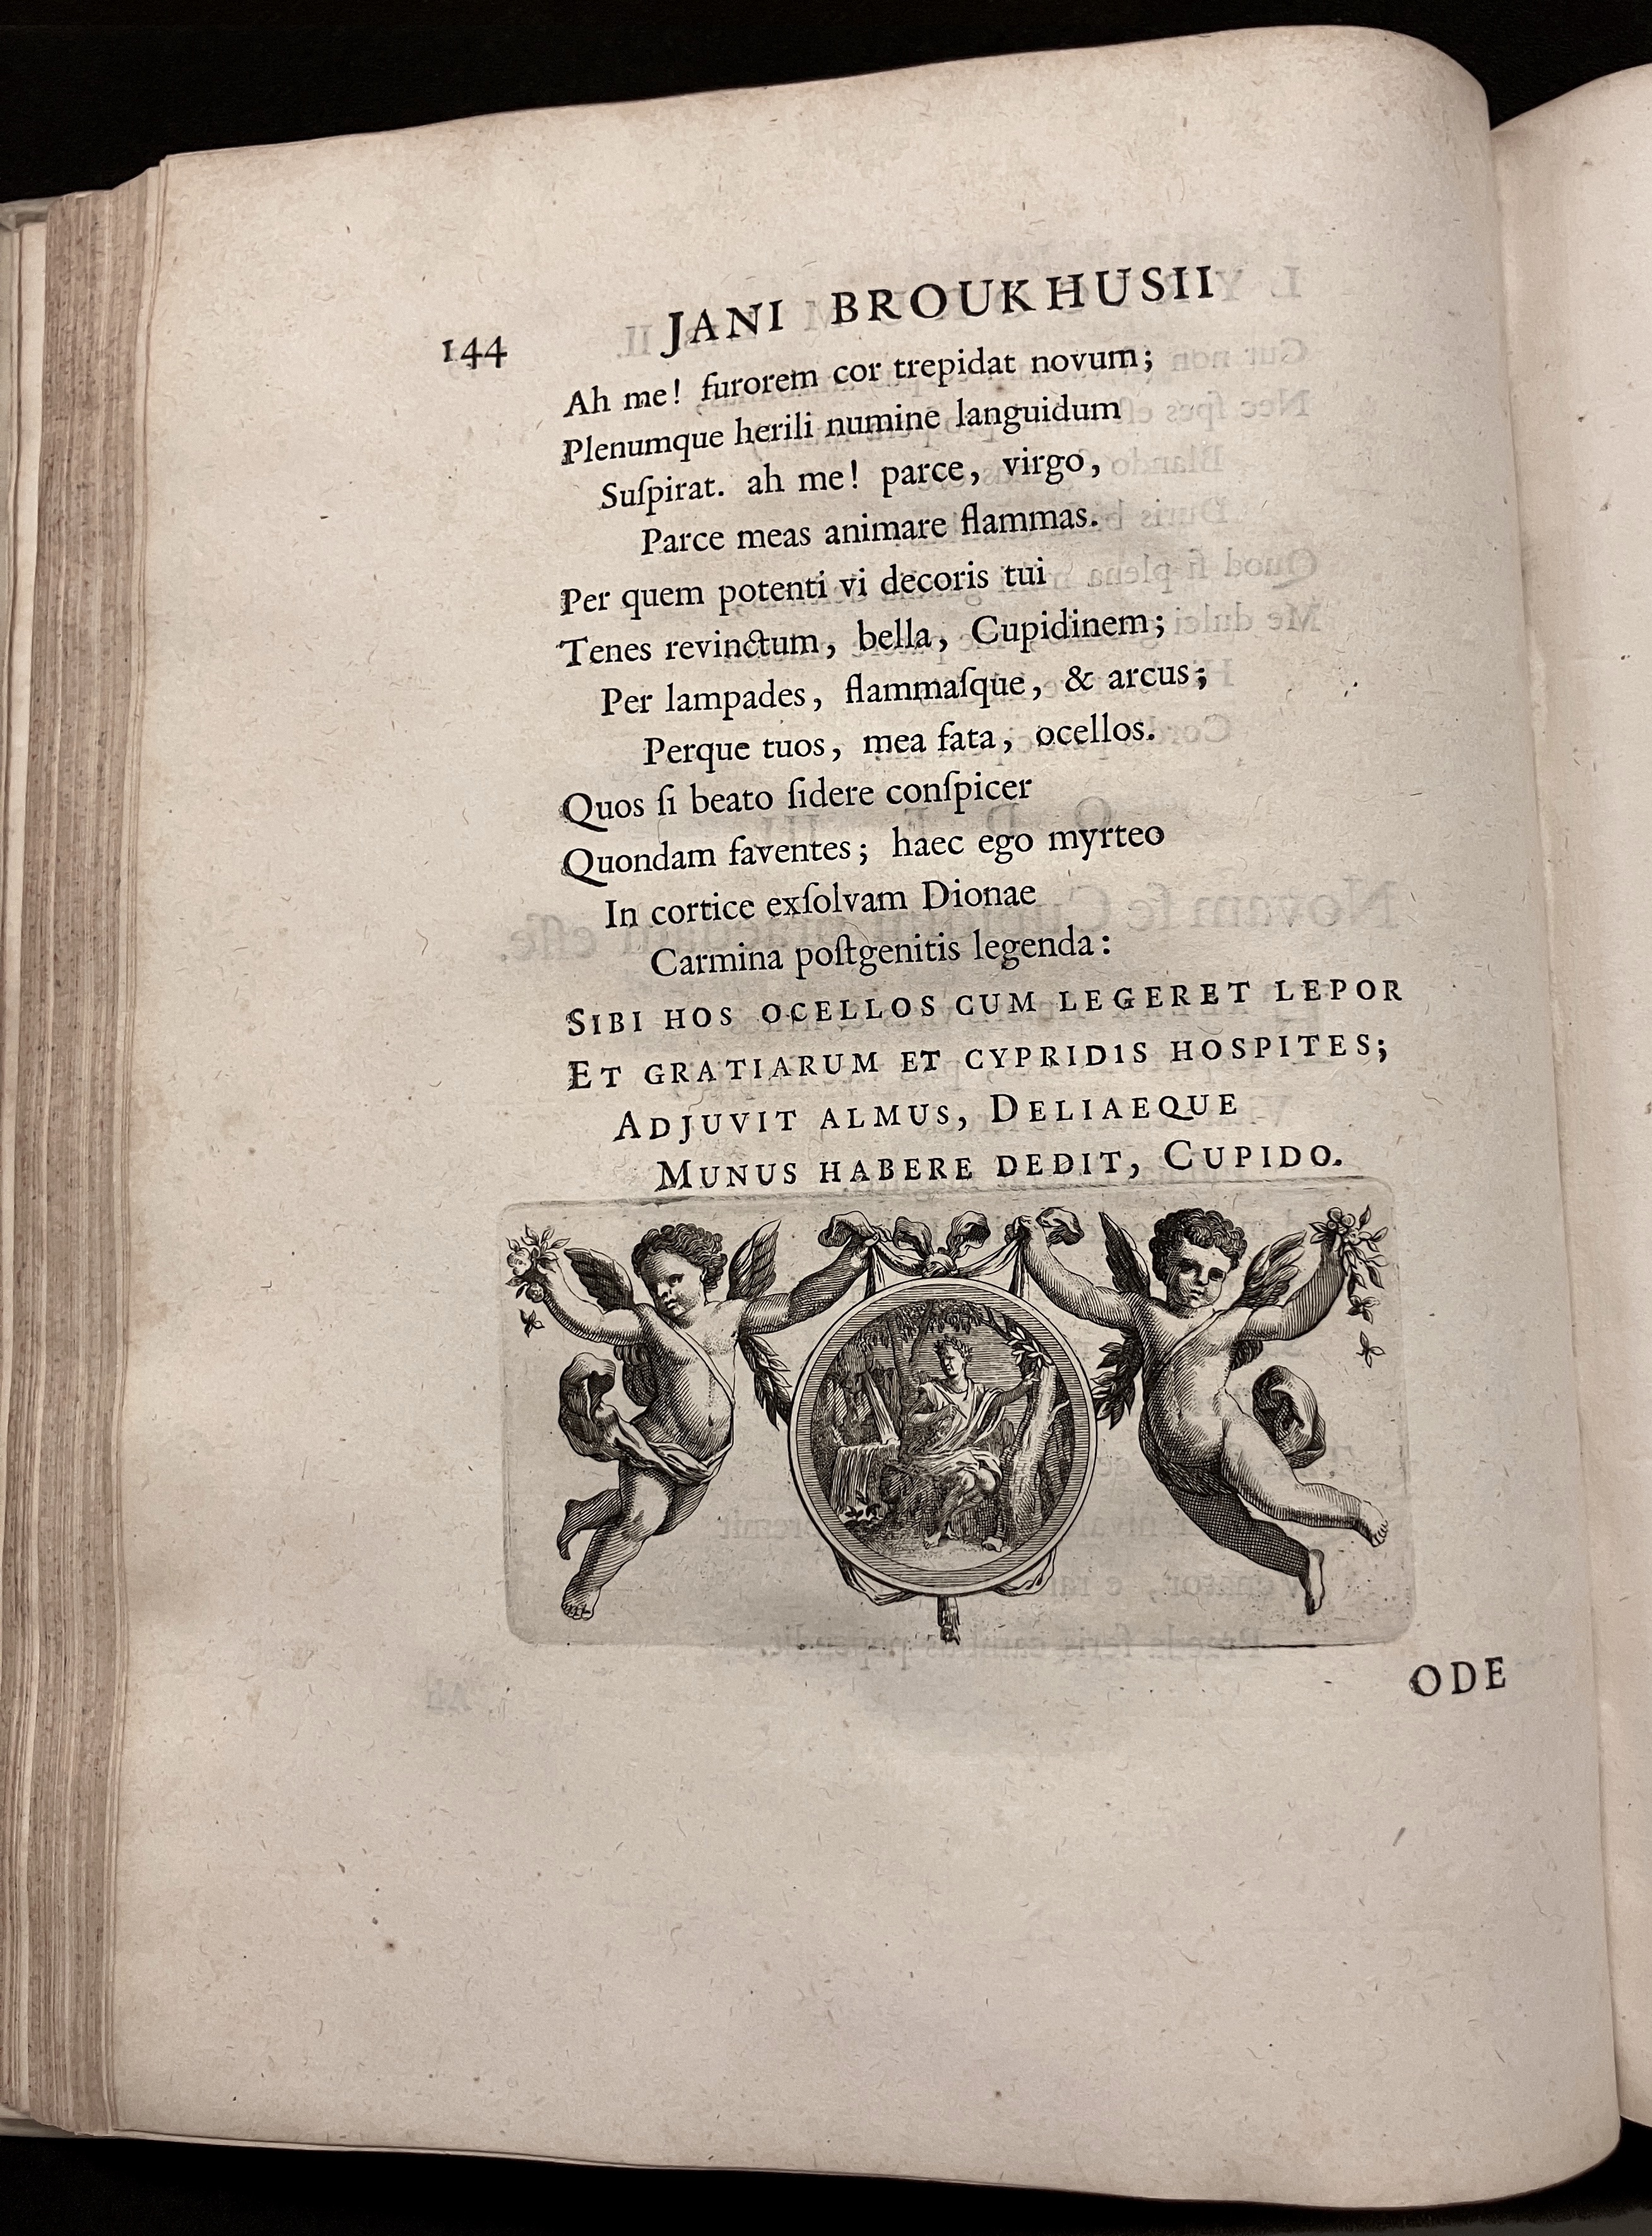 144 JANI BROUKHUSII
Ah me! furorem cor trepidat novum;
Plenumque herili numine languidum
Suſpirat. ah me! parce, virgo,
Parce meas animare flammas.
Per quem potenti vi decoris tui
Tenes revinctum, bella, Cupidinem;
Per lampades, flammaſque, & arcus;
Perque tuos, mea fata, ocellos.
Quos ſi beato ſidere conſpicer
Quondam faventes; haec ego myrteo
In cortice exſolvam Dionae
Carmina poſtgenitis legenda:
SIBI HOS OCELLOS CUM LEGERET LEPOR
ET GRATIARUM ET CYPRIDIS HOSPITES;
ADJUVIT ALMUS, DELIAEQUE
MUNUS HABERE DEDIT, CUPIDO.
ODE